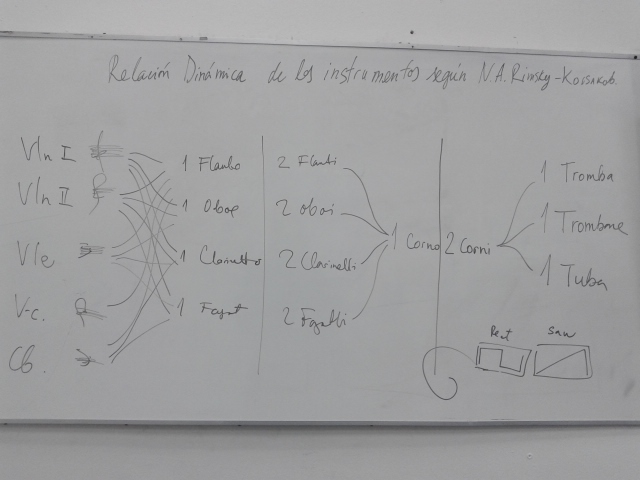 Relación Dinámica de los instrumentos según N.A. Rimsky-Korsakob.
Vln I
Vln II
Vle
V-c.
Cb.
1 Flauto
1 Oboe
1 Clarinetto
1 Fagot
2 Flauti
2 Oboi
2 Clarinetti
2 Fagotti
1 Corno
2 Corni
1 Tromba
1 Trombone
1 Tuba
Saw